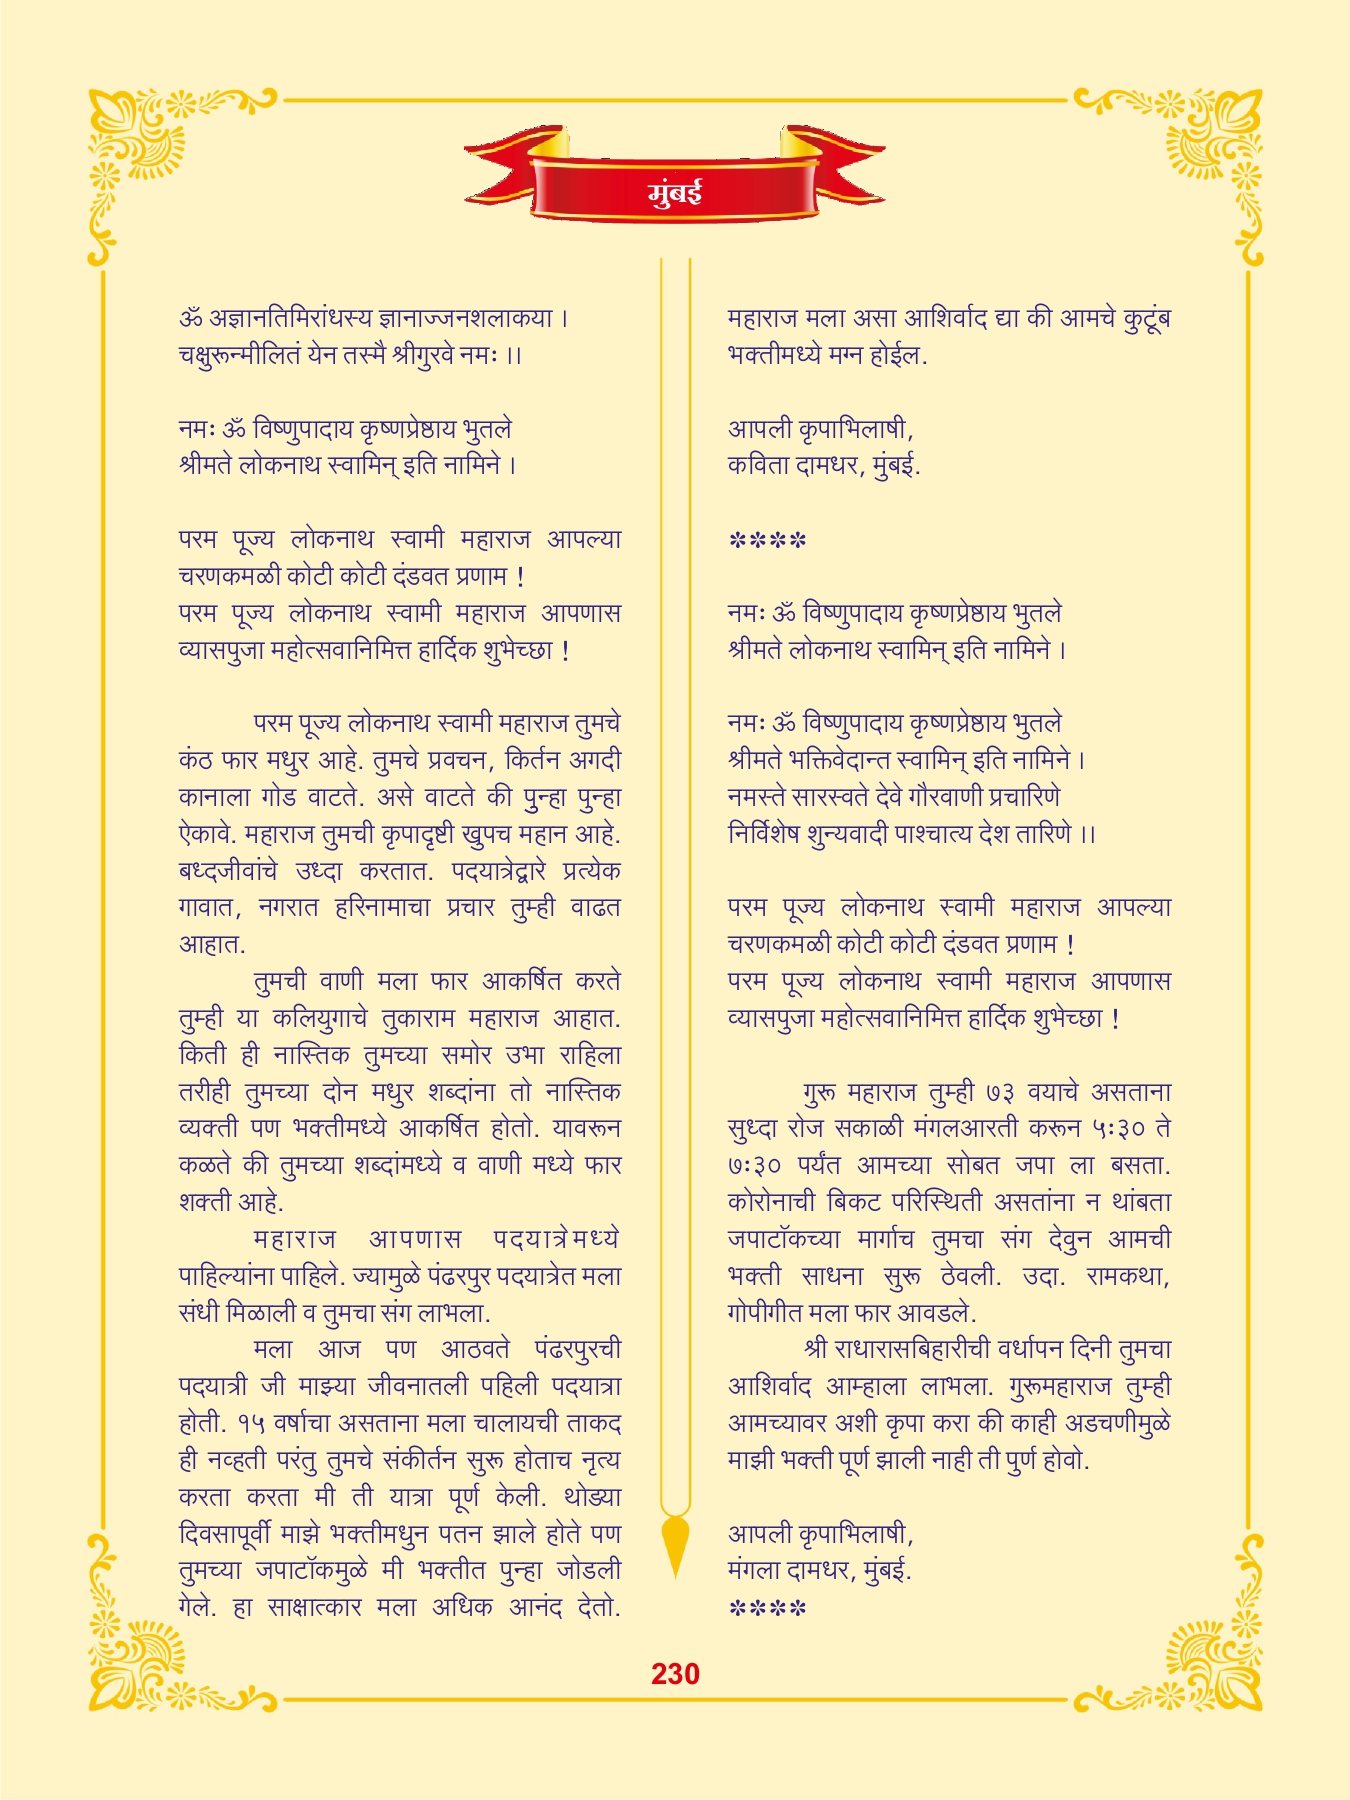 मुंबई
ॐ अज्ञानतिमिरांधस्य ज्ञानाज्जनशलाकया ।
चक्षुरून्मीलितं येन तस्मै श्रीगुरवे नमः ।।
नमः ॐ विष्णुपादाय कृष्णप्रेष्ठाय भुतले
श्रीमते लोकनाथ स्वामिन् इति नामिने ।
परम पूज्य लोकनाथ स्वामी महाराज आपल्या
चरणकमळी कोटी कोटी दंडवत प्रणाम !
परम पूज्य लोकनाथ स्वामी महाराज आपणास
व्यासपुजा महोत्सवानिमित्त हार्दिक शुभेच्छा !
परम पूज्य लोकनाथ स्वामी महाराज तुमचे
कंठ फार मधुर आहे. तुमचे प्रवचन, किर्तन अगदी
कानाला गोड वाटते. असे वाटते की पुन्हा पुन्हा
ऐकावे. महाराज तुमची कृपादृष्टी खुपच महान आहे.
बध्दजीवांचे उध्दा करतात. पदयात्रेद्वारे प्रत्येक
गावात, नगरात हरिनामाचा प्रचार तुम्ही वाढत
आहात.
तुमची वाणी मला फार आकर्षित करते
तुम्ही या कलियुगाचे तुकाराम महाराज आहात.
किती ही नास्तिक तुमच्या समोर उभा राहिला
तरीही तुमच्या दोन मधुर शब्दांना तो नास्तिक
व्यक्ती पण भक्तीमध्ये आकर्षित होतो. यावरून
कळते की तुमच्या शब्दांमध्ये व वाणी मध्ये फार
शक्ती आहे.
महाराज आपणास पदयात्रेमध्ये
पाहिल्यांना पाहिले. ज्यामुळे पंढरपुर पदयात्रेत मला
संधी मिळाली व तुमचा संग लाभला.
मला आज पण आठवते पंढरपुरची
पदयात्री जी माझ्या जीवनातली पहिली पदयात्रा
होती. १५ वर्षाचा असताना मला चालायची ताकद
ही नव्हती परंतु तुमचे संकीर्तन सुरू होताच नृत्य
करता करता मी ती यात्रा पूर्ण केली. थोड्या
दिवसापूर्वी माझे भक्तीमधुन पतन झाले होते पण
तुमच्या जपाटॉकमुळे मी भक्तीत पुन्हा जोडली
गेले. हा साक्षात्कार मला अधिक आनंद देतो.
महाराज मला असा आशिर्वाद द्या की आमचे कुटूंब
भक्तीमध्ये मग्न होईल.
आपली कृपाभिलाषी,
कविता दामधर, मुंबई.
****
नमः ॐ विष्णुपादाय कृष्णप्रेष्ठाय भुतले
श्रीमते लोकनाथ स्वामिन् इति नामिने ।
नमः ॐ विष्णुपादाय कृष्णप्रेष्ठाय भुतले
श्रीमते भक्तिवेदान्त स्वामिन् इति नामिने ।
नमस्ते सारस्वते देवे गौरवाणी प्रचारिणे
निर्विशेष शुन्यवादी पाश्चात्य देश तारिणे ।।
परम पूज्य लोकनाथ स्वामी महाराज आपल्या
चरणकमळी कोटी कोटी दंडवत प्रणाम !
परम पूज्य लोकनाथ स्वामी महाराज आपणास
व्यासपुजा महोत्सवानिमित्त हार्दिक शुभेच्छा !
गुरू महाराज तुम्ही ७३ वयाचे असताना
सुध्दा रोज सकाळी मंगलआरती करून ५:३० ते
७:३० पर्यंत आमच्या सोबत जपा ला बसता.
कोरोनाची बिकट परिस्थिती असतांना न थांबता
जपाटॉकच्या मार्गाच तुमचा संग देवुन आमची
भक्ती साधना सुरू ठेवली. उदा. रामकथा,
गोपीगीत मला फार आवडले.
श्री राधारासबिहारीची वर्धापन दिनी तुमचा
आशिर्वाद आम्हाला लाभला. गुरूमहाराज तुम्ही
आमच्यावर अशी कृपा करा की काही अडचणीमुळे
माझी भक्ती पूर्ण झाली नाही ती पुर्ण होवो.
आपली कृपाभिलाषी,
मंगला दामधर, मुंबई.
****
230